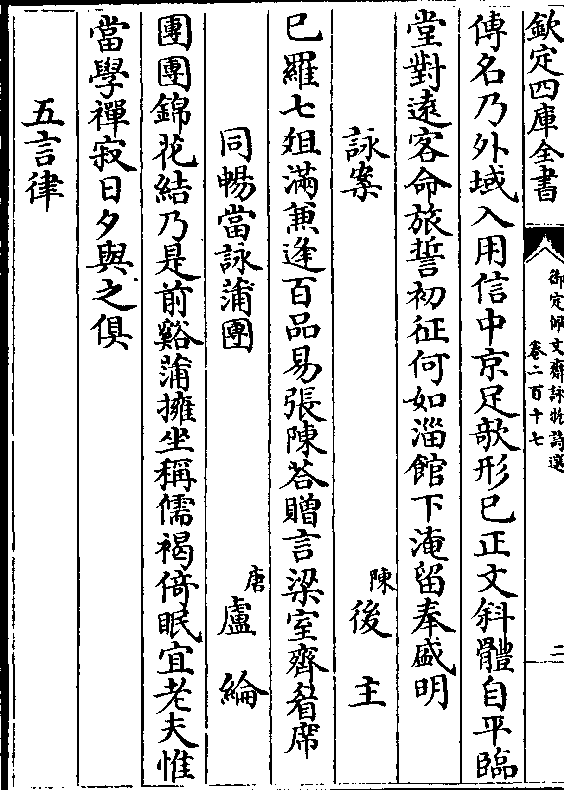 欽定四庫全書
御定佩文齋詠物詩選
卷二百十七
二
傳名乃外域入用信中京足欹形已正文斜體自平臨
堂對遠客命旅誓初征何如淄館下淹留奉盛明
詠案
陳
後主
已羅七俎滿兼逢百品易張陳荅贈言梁室齊眉席
同暢當詠蒲團
唐
盧綸
團團錦花結乃是前谿蒲擁坐稱儒褐倚眠宜老夫惟
當學禪寂日夕與之俱
五言律